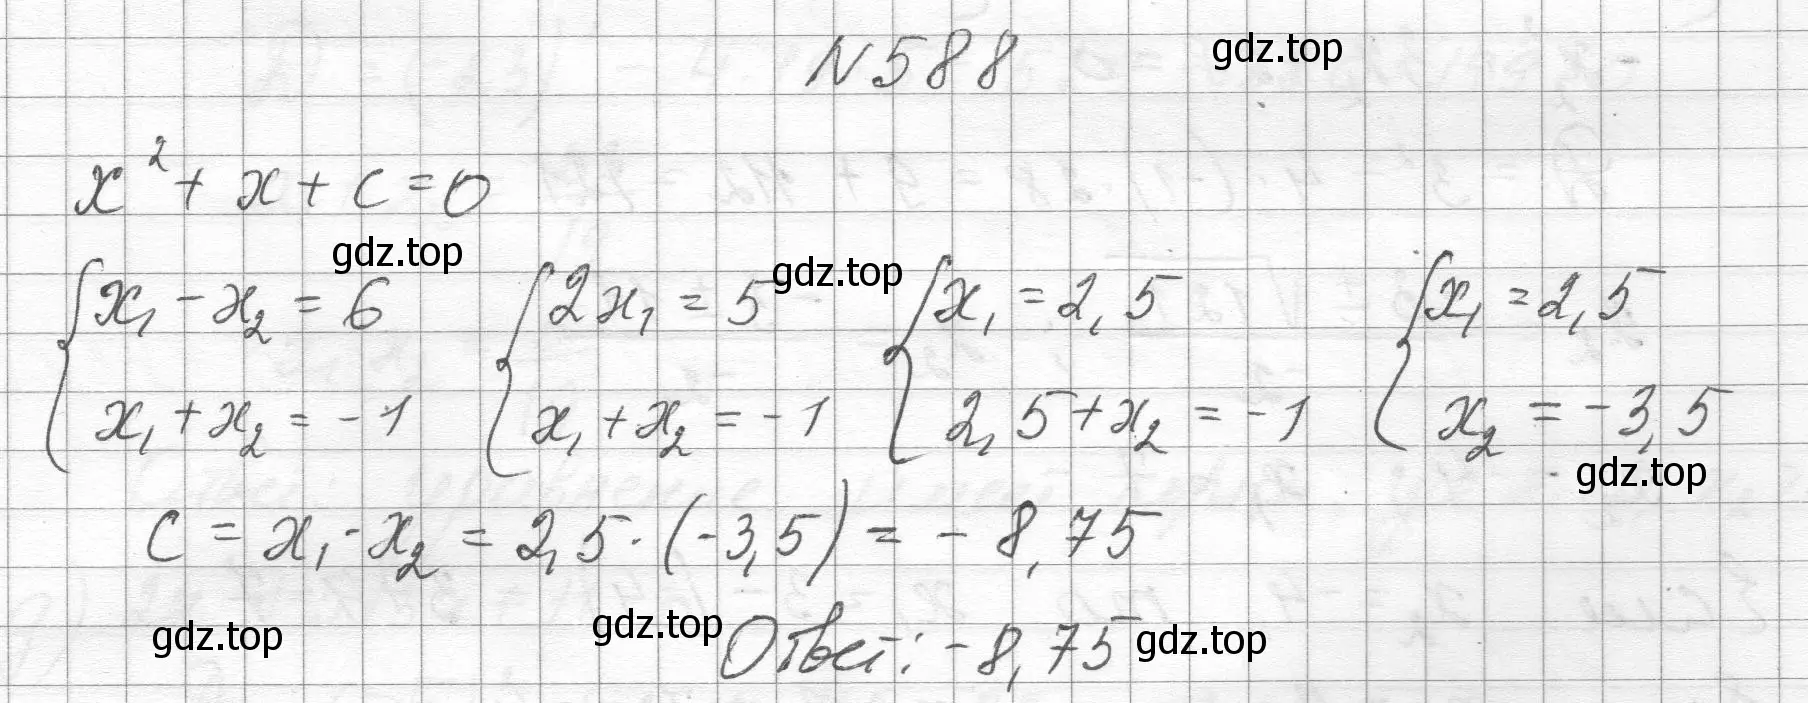 N 588 gdz.top
x² + x + c = 0
gdz.top gdz.top
{ x₁ - x₂ = 6 { 2x₁ = 5 { x₁ = 2,5 { x₁ = 2,5
x₁ + x₂ = -1 x₁ + x₂ = -1 2,5 + x₂ = -1 x₂ = -3,5
gdz.top
c = x₁ · x₂ = 2,5 · (-3,5) = - 8,75
gdz.top gdz.top Ответ: -8,75 gdz.top